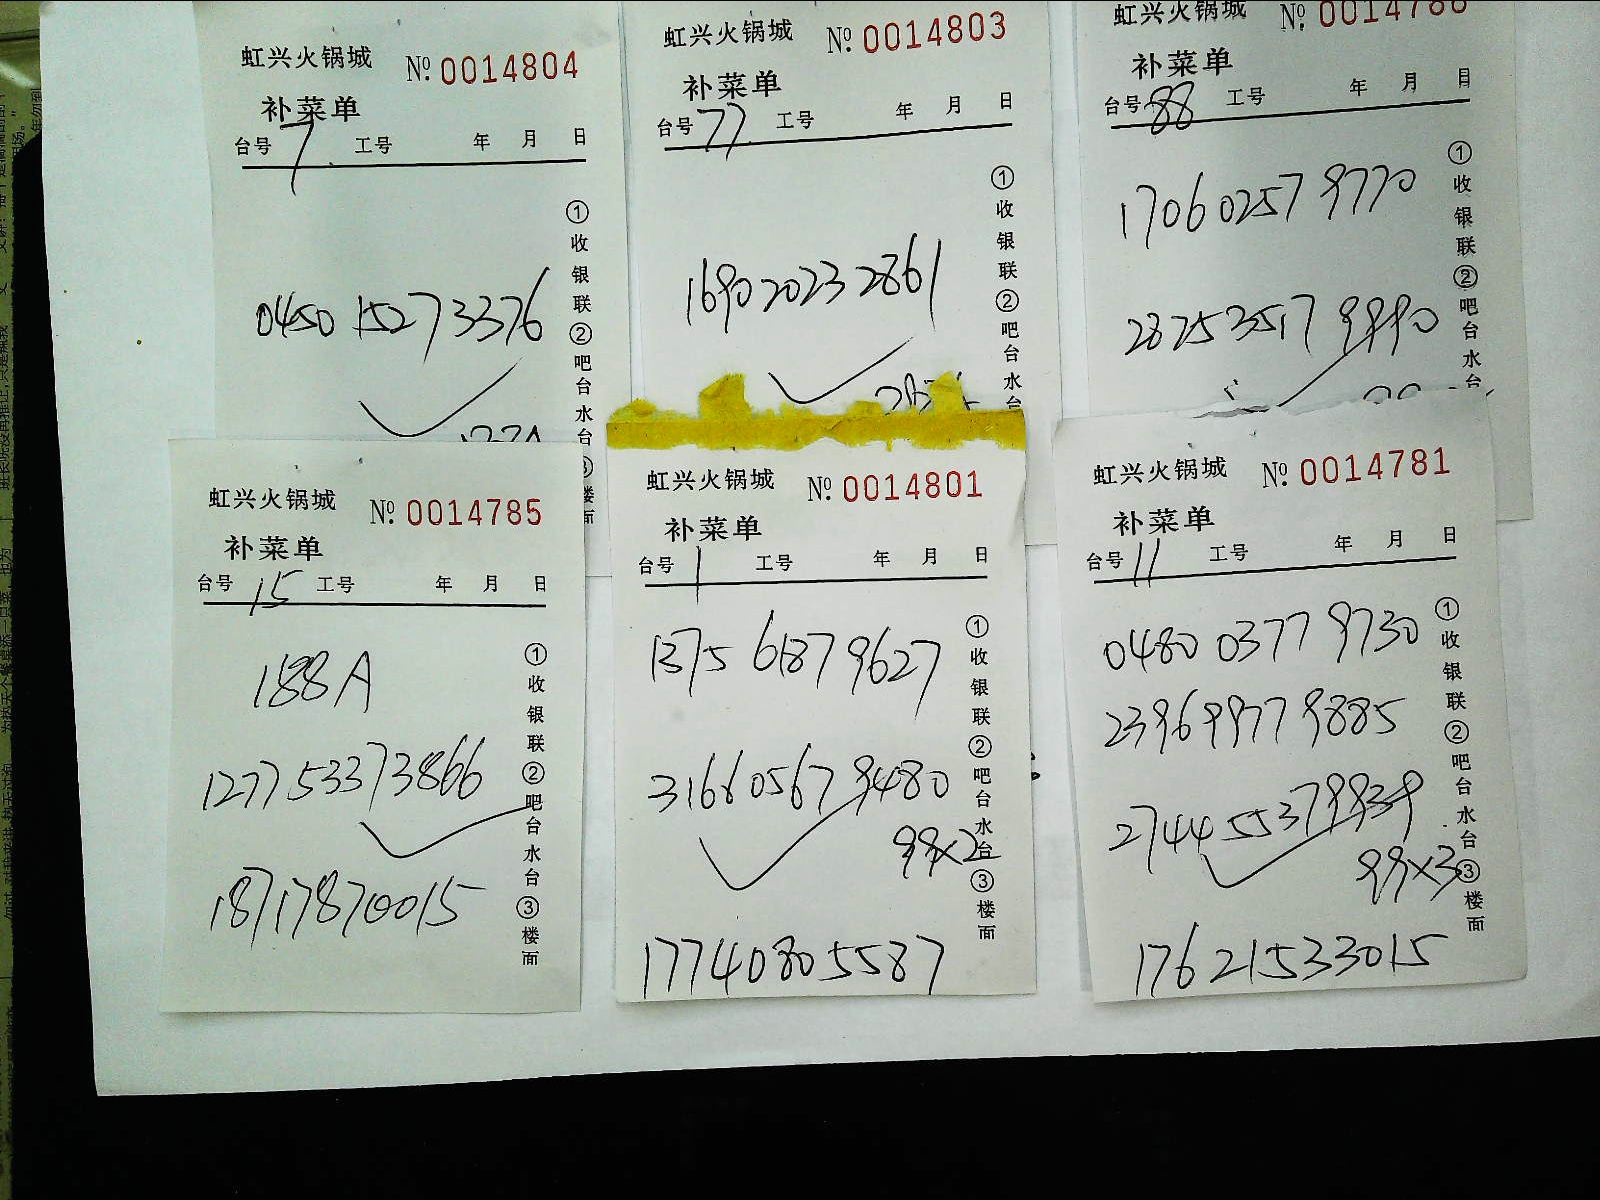 虹兴火锅城 №: 0014804
补菜单
台号 7 工号 年 月 日
0450 15273376
①收银联②吧台水台③楼面
虹兴火锅城 №: 0014803
补菜单
台号 77 工号 年 月 日
169020232861
①收银联②吧台水台
虹兴火锅城 №:
补菜单
台号 88 工号 年 月 日
1706 0257 9770
28253517 9990
①收银联②吧台水台
虹兴火锅城 №: 0014785
补菜单
台号 15 工号 年 月 日
188A
127753373866
18717870015
①收银联②吧台水台③楼面
虹兴火锅城 №: 0014801
补菜单
台号 1 工号 年 月 日
1375 6187 9627
316605679480
99×2
17740805587
①收银联②吧台水台③楼面
虹兴火锅城 №: 0014781
补菜单
台号 11 工号 年 月 日
0480 0377 9730
239699779885
2744 55379939
99×3
17621533015
①收银联②吧台水台③楼面